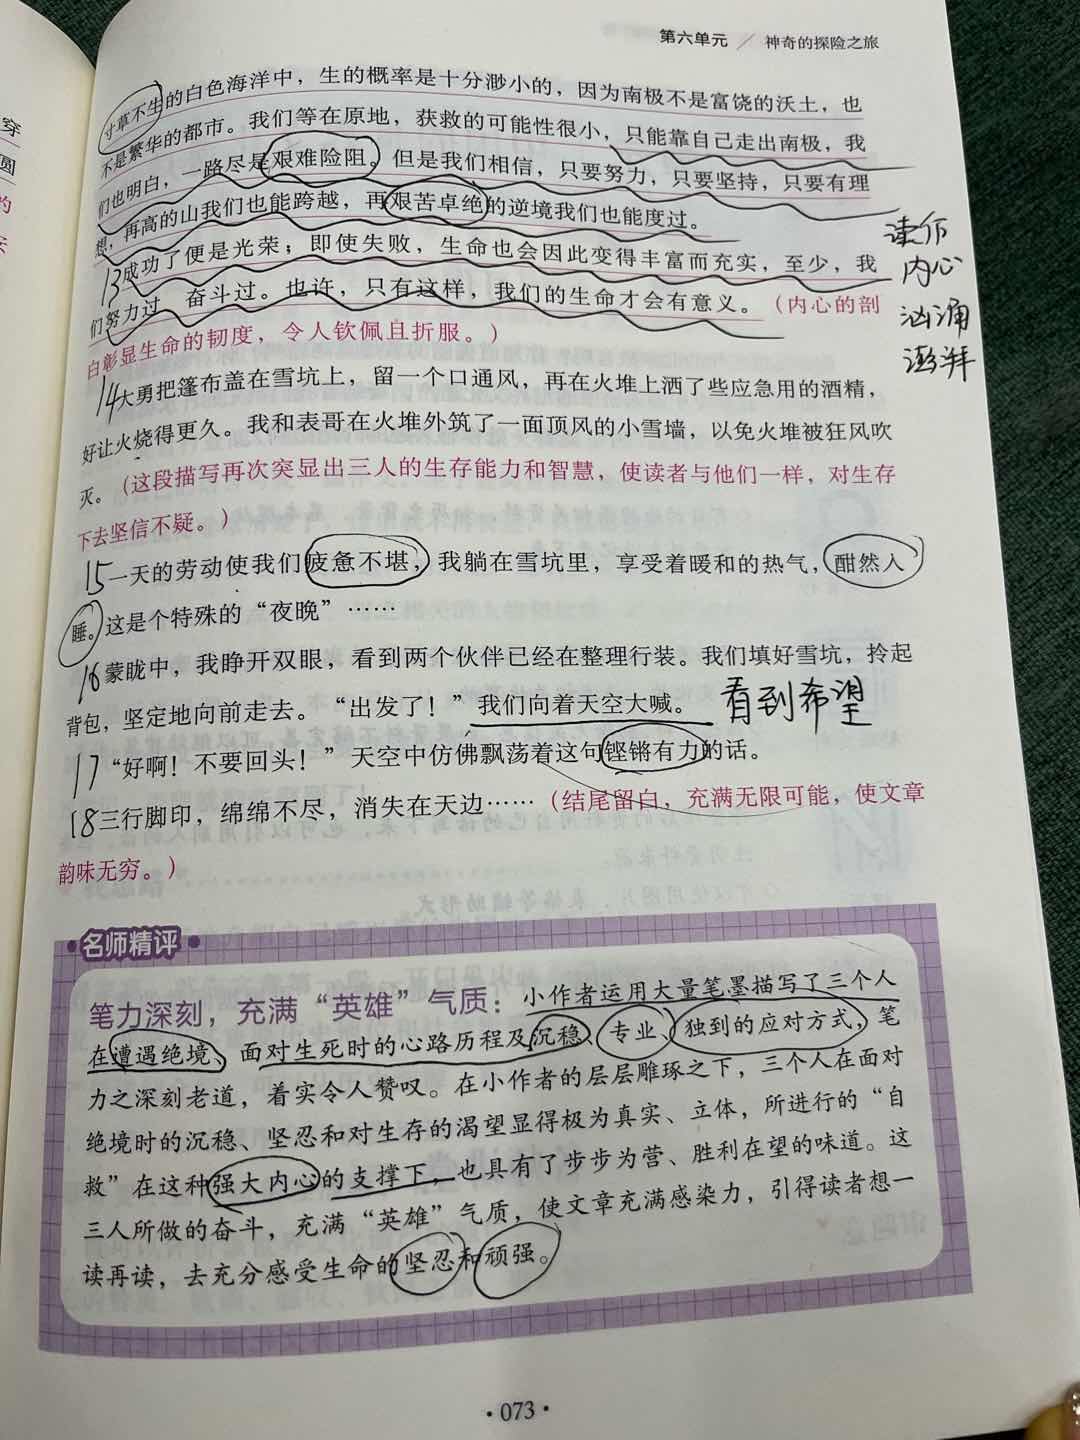 第六单元 / 神奇的探险之旅
穿
圆
寸草不生的白色海洋中，生的概率是十分渺小的，因为南极不是富饶的沃土，也
不是繁华的都市。我们等在原地，获救的可能性很小，只能靠自己走出南极，我
们也明白，一路尽是艰难险阻。但是我们相信，只要努力，只要坚持，只要有理
想，再高的山我们也能跨越，再艰苦卓绝的逆境我们也能度过。
读作
内心
汹涌
澎湃
13成功了便是光荣；即使失败，生命也会因此变得丰富而充实，至少，我
们努力过 奋斗过。也许，只有这样，我们的生命才会有意义。（内心的剖
白彰显生命的韧度，令人钦佩且折服。）
14大勇把篷布盖在雪坑上，留一个口通风，再在火堆上洒了些应急用的酒精，
好让火烧得更久。我和表哥在火堆外筑了一面顶风的小雪墙，以免火堆被狂风吹
灭。（这段描写再次突显出三人的生存能力和智慧，使读者与他们一样，对生存
下去坚信不疑。）
15一天的劳动使我们疲惫不堪，我躺在雪坑里，享受着暖和的热气，酣然入
睡。这是个特殊的“夜晚”……
16蒙眬中，我睁开双眼，看到两个伙伴已经在整理行装。我们填好雪坑，拎起
背包，坚定地向前走去。“出发了！”我们向着天空大喊。 看到希望
17“好啊！不要回头！”天空中仿佛飘荡着这句铿锵有力的话。
18三行脚印，绵绵不尽，消失在天边……（结尾留白，充满无限可能，使文章
韵味无穷。）
名师精评
笔力深刻，充满“英雄”气质：小作者运用大量笔墨描写了三个人
在遭遇绝境、面对生死时的心路历程及沉稳、专业、独到的应对方式，笔
力之深刻老道，着实令人赞叹。在小作者的层层雕琢之下，三个人在面对
绝境时的沉稳、坚忍和对生存的渴望显得极为真实、立体，所进行的“自
救”在这种强大内心的支撑下，也具有了步步为营、胜利在望的味道。这
三人所做的奋斗，充满“英雄”气质，使文章充满感染力，引得读者想一
读再读，去充分感受生命的坚忍和顽强。
·073·